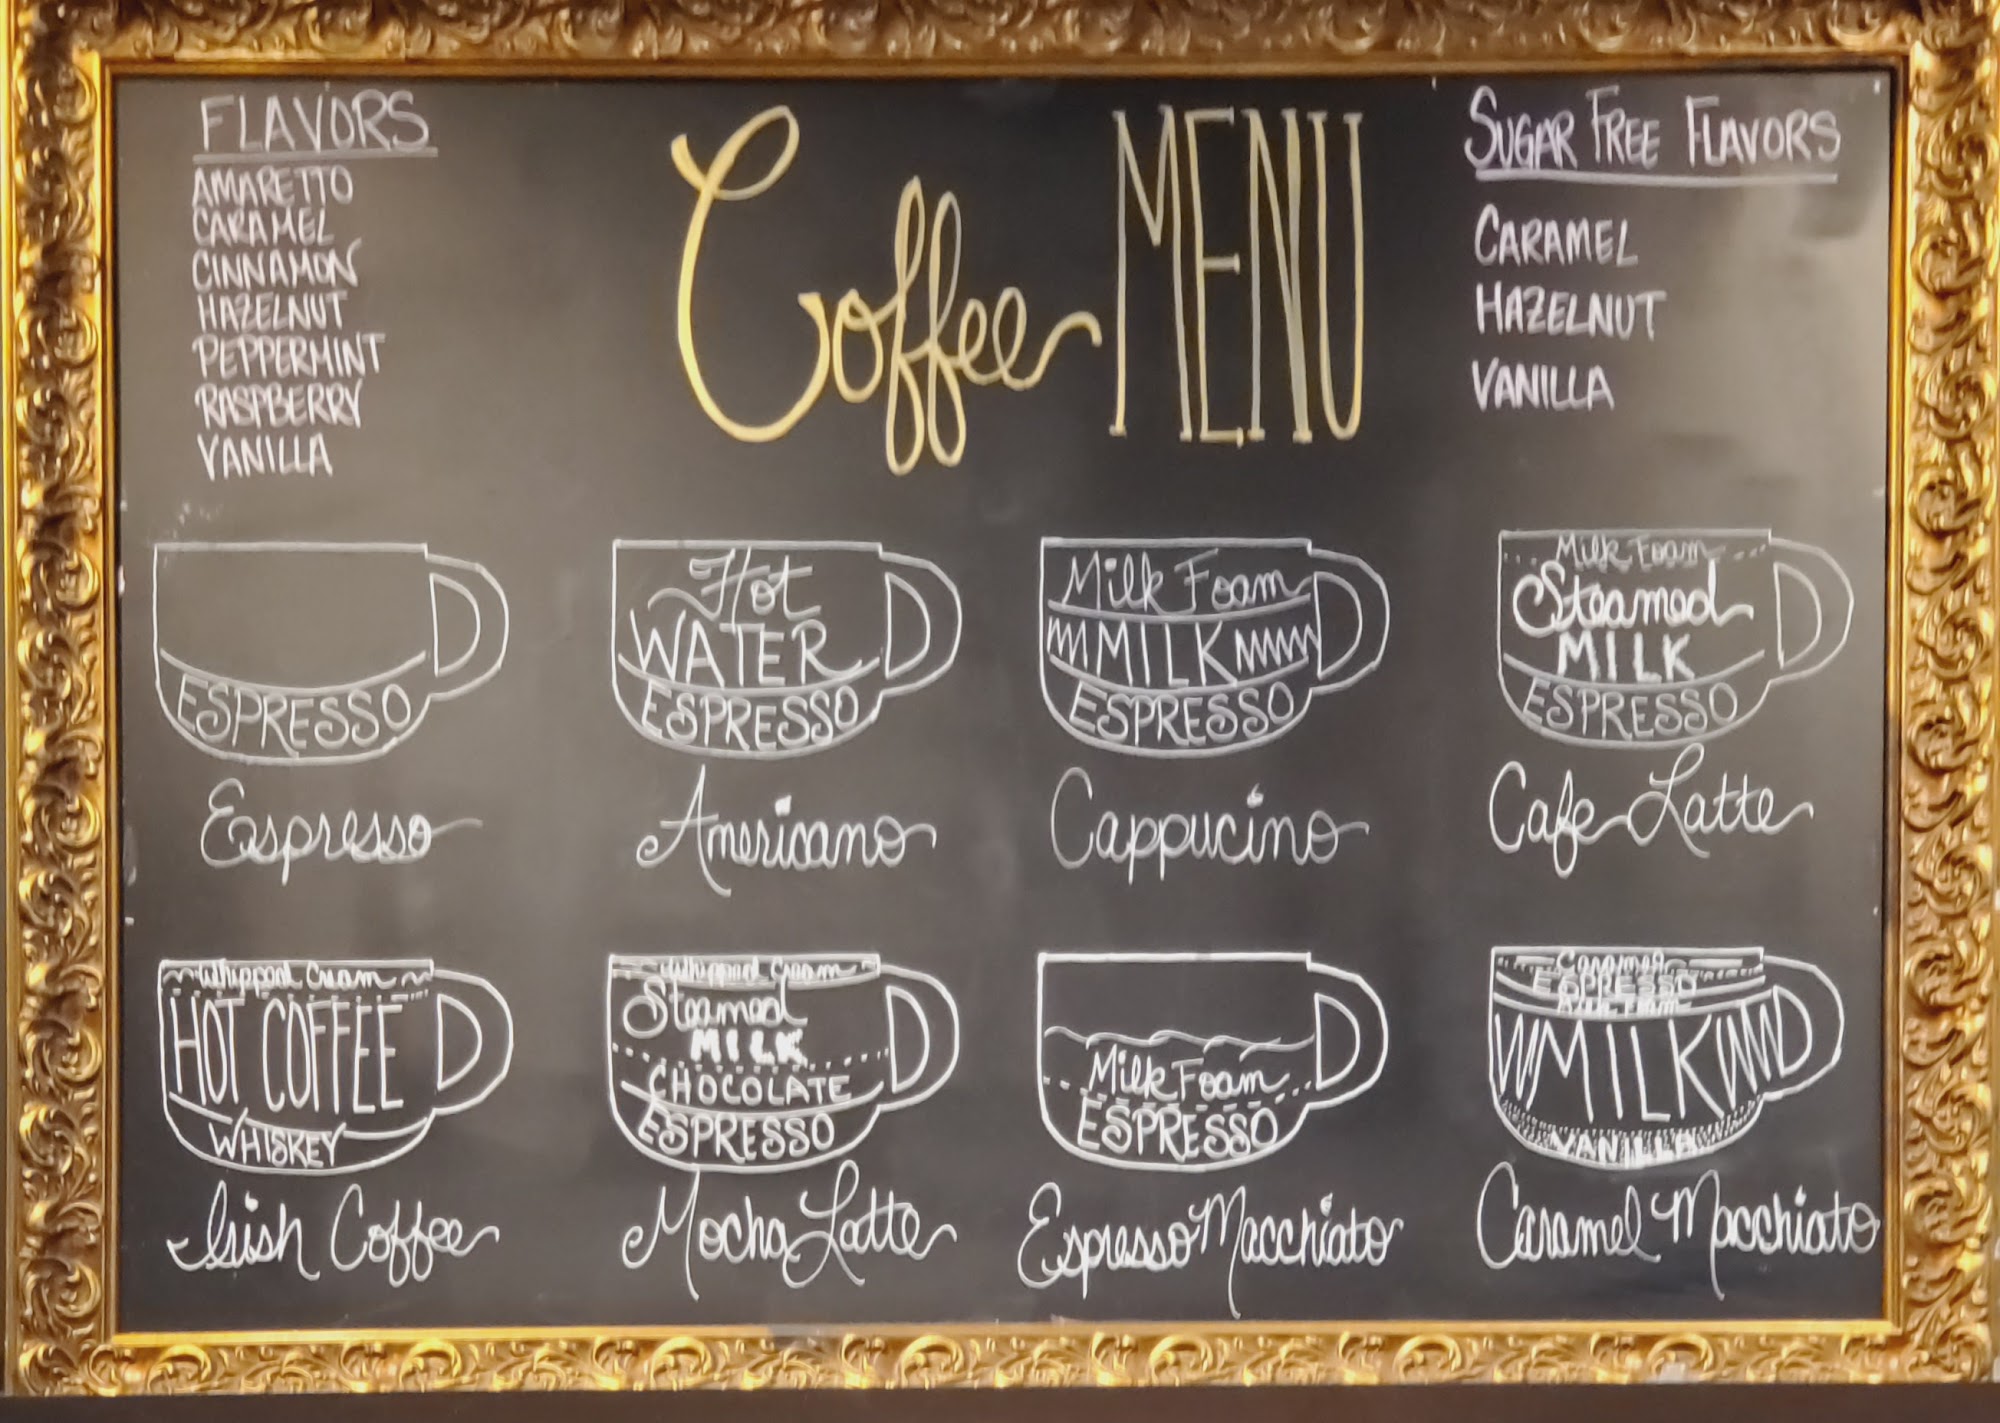 FLAVORS
AMARETTO
CARAMEL
CINNAMON
HAZELNUT
PEPPERMINT
RASPBERRY
VANILLA
Coffee MENU
SUGAR FREE FLAVORS
CARAMEL
HAZELNUT
VANILLA
ESPRESSO
Espresso
Hot
WATER
ESPRESSO
Americano
Milk Foam
MILK
ESPRESSO
Cappucino
Milk Foam
Steamed
MILK
ESPRESSO
Cafe Latte
Whipped Cream
HOT COFFEE
WHISKEY
Irish Coffee
Whipped Cream
Steamed
MILK
CHOCOLATE
ESPRESSO
Mocha Latte
Milk Foam
ESPRESSO
Espresso Macchiato
Caramel
ESPRESSO
Milk Foam
MILK
VANILLA
Caramel Macchiato